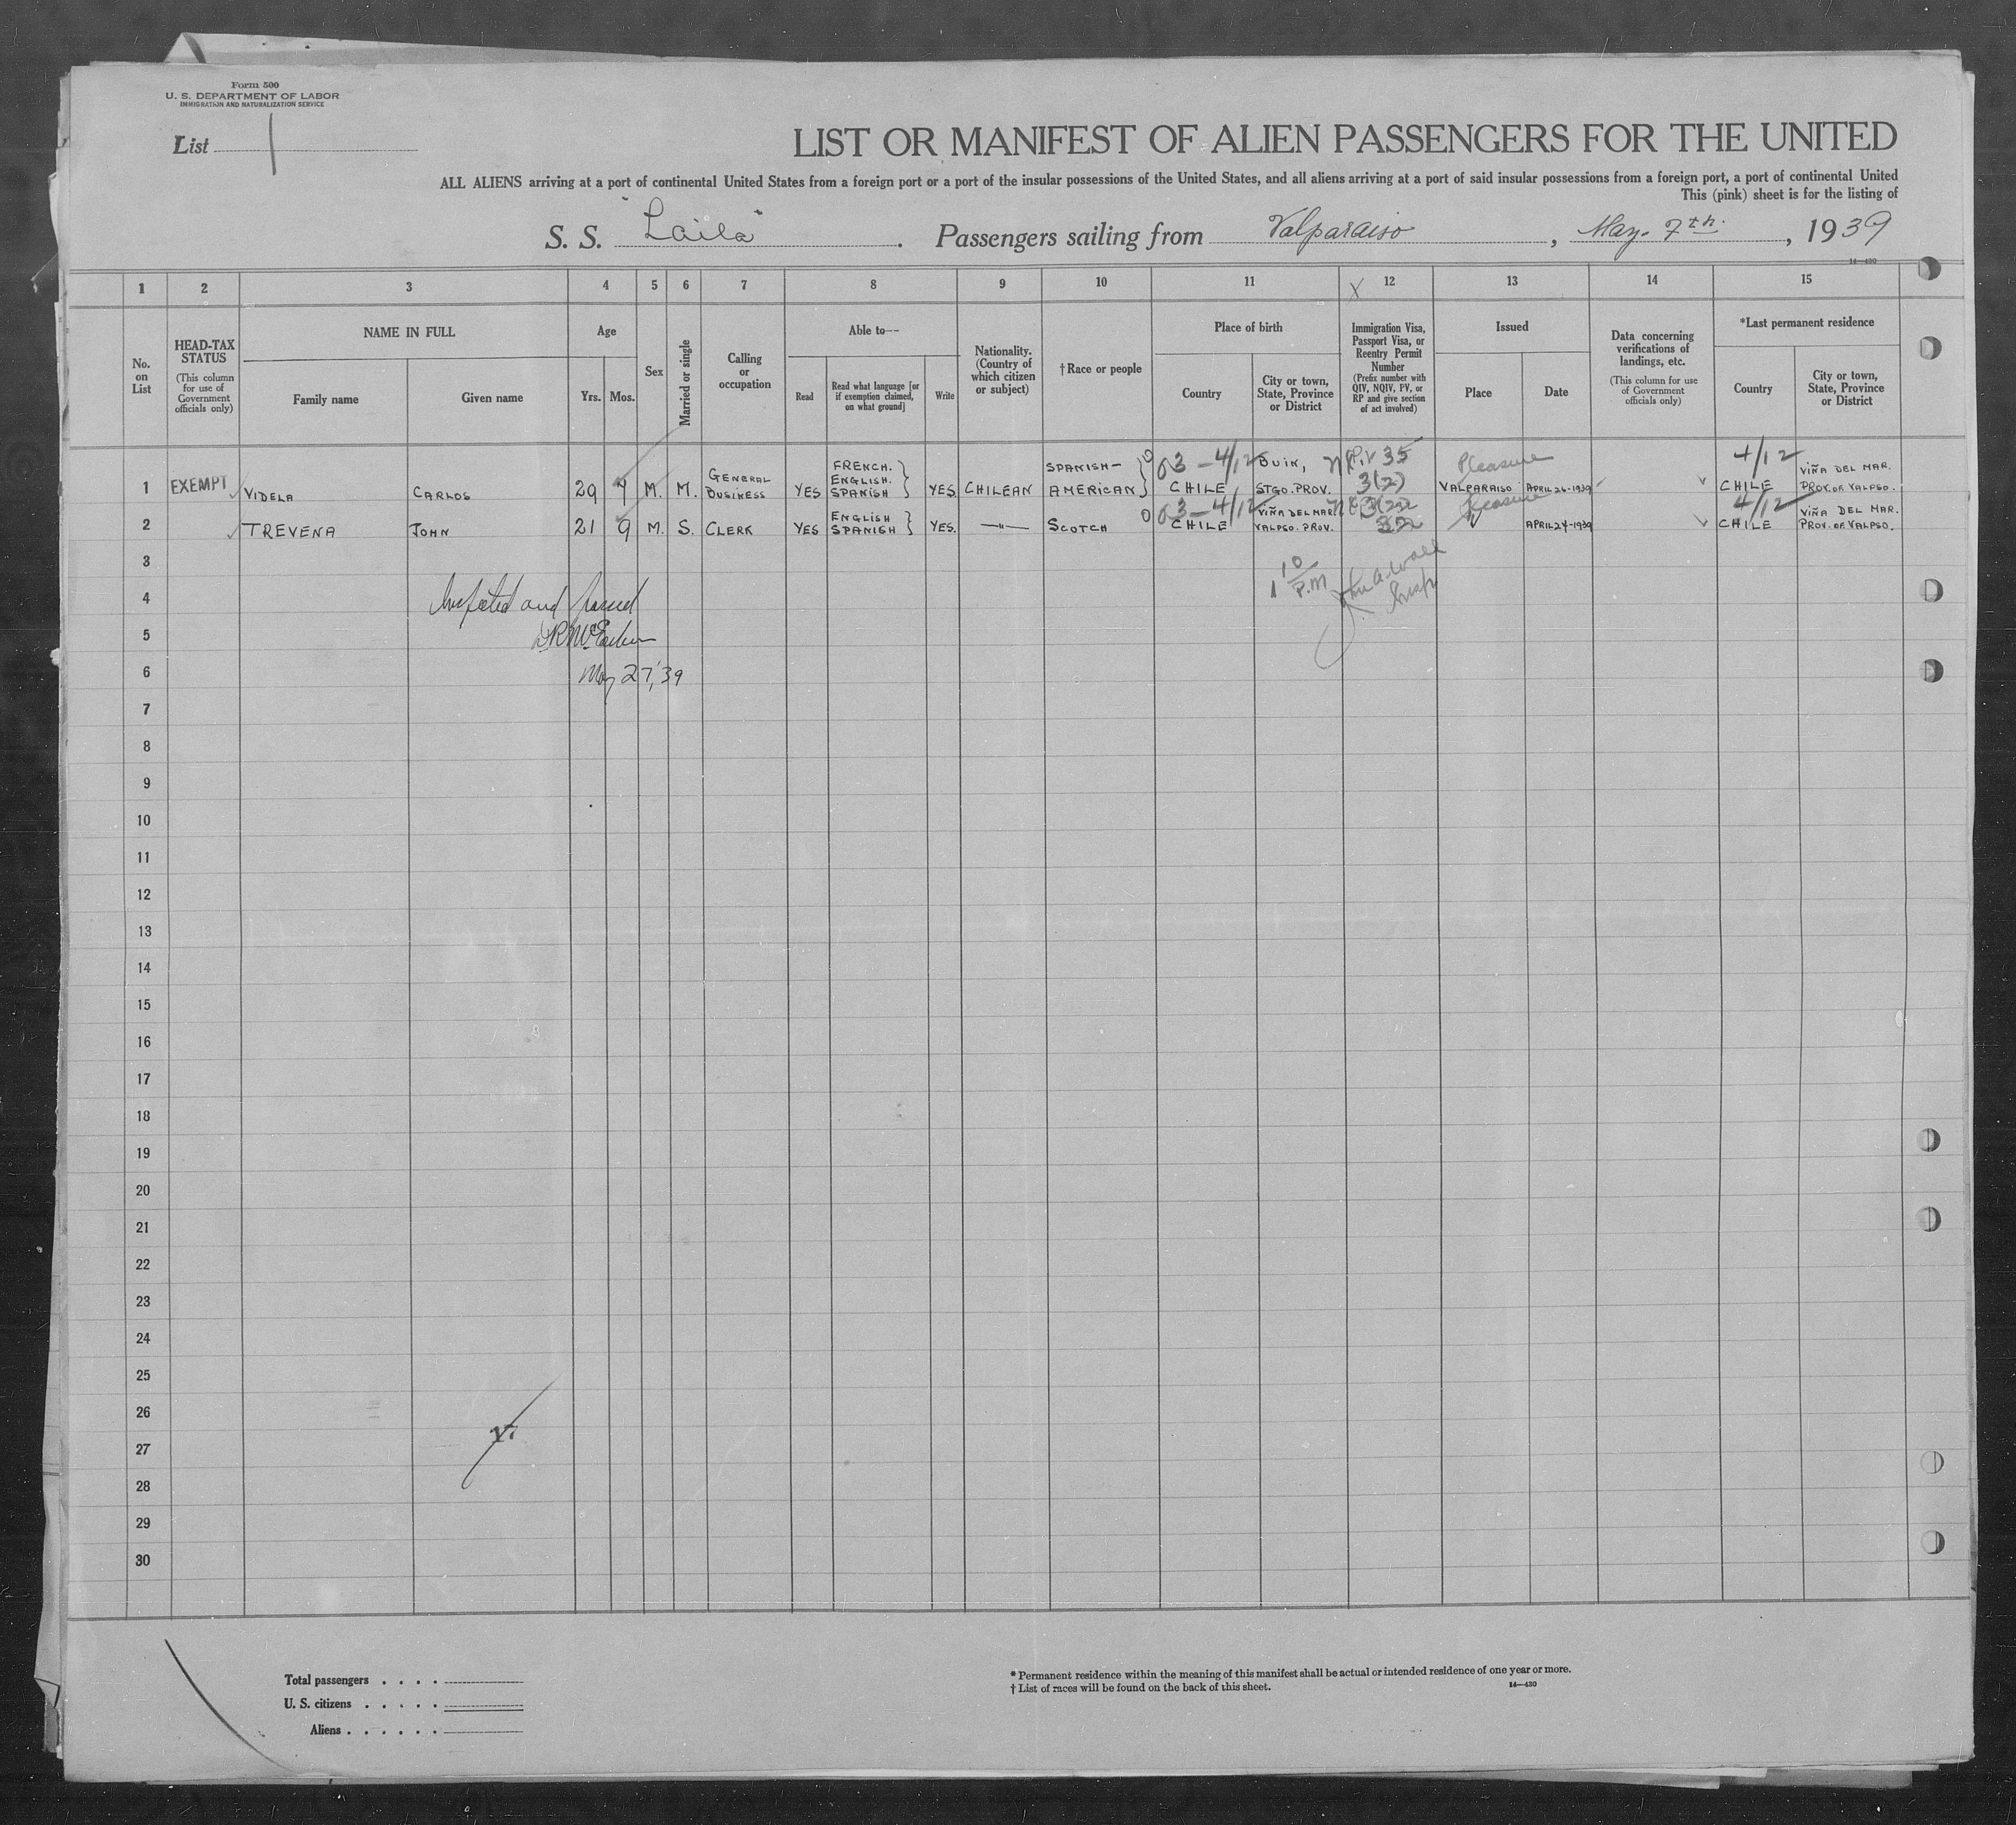 Form 500
U. S. DEPARTMENT OF LABOR
IMMIGRATION AND NATURALIZATION SERVICE
List 1
LIST OR MANIFEST OF ALIEN PASSENGERS FOR THE UNITED
ALL ALIENS arriving at a port of continental United States from a foreign port or a port of the insular possessions of the United States, and all aliens arriving at a port of said insular possessions from a foreign port, a port of continental United
This (pink) sheet is for the listing of
S. S. "Laila". Passengers sailing from Valparaiso, May. 7th., 1939
14—430
1 2 3 4 5 6 7 8 9 10 11 X 12 13 14 15
No. on List
HEAD-TAX STATUS
(This column for use of Government officials only)
NAME IN FULL
Family name
Given name
Age
Yrs. Mos.
Sex
Married or single
Calling or occupation
Able to—
Read
Read what language [or if exemption claimed, on what ground]
Write
Nationality. (Country of which citizen or subject)
†Race or people
Place of birth
Country
City or town, State, Province or District
Immigration Visa, Passport Visa, or Reentry Permit Number
(Prefix number with QIV, NQIV, PV, or RP and give section of act involved)
Issued
Place
Date
Data concerning verifications of landings, etc.
(This column for use of Government officials only)
*Last permanent residence
Country
City or town, State, Province or District
1 EXEMPT VIDELA CARLOS 29 M. M. GENERAL BUSINESS YES FRENCH. ENGLISH. SPANISH YES CHILEAN SPANISH-AMERICAN 03-4/12 CHILE BUIN, STGO. PROV. 35 3(2) Pleasure VALPARAISO APRIL 26-1939 4/12 CHILE VIÑA DEL MAR. PROV. OF VALPSO.
2 TREVENA JOHN 21 9 M. S. CLERK YES ENGLISH SPANISH YES. —"— SCOTCH 03-4/12 CHILE VIÑA DEL MAR. VALPSO. PROV. 32 Pleasure APRIL 24-1939 4/12 CHILE VIÑA DEL MAR. PROV. OF VALPSO.
3
1 10 P.M
4 Inspected and passed
5
6 May 27, 39
7
8
9
10
11
12
13
14
15
16
17
18
19
20
21
22
23
24
25
26
27
28
29
30
Total passengers . . . .
U. S. citizens . . . . .
Aliens . . . . . .
* Permanent residence within the meaning of this manifest shall be actual or intended residence of one year or more.
† List of races will be found on the back of this sheet.
14—430